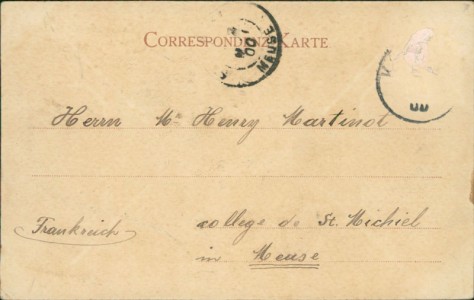 CORRESPONDENZ-KARTE
MEUSE
00
Herrn Mr Henry Martinot
Frankreich
college de St. Michiel
in Meuse